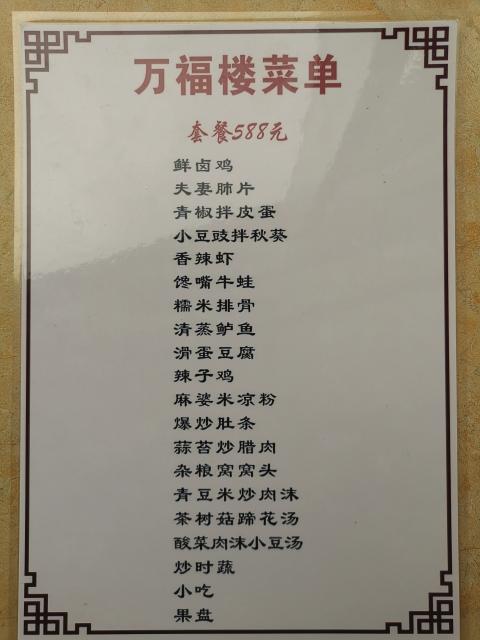 万福楼菜单
套餐588元
鲜卤鸡
夫妻肺片
青椒拌皮蛋
小豆豉拌秋葵
香辣虾
馋嘴牛蛙
糯米排骨
清蒸鲈鱼
滑蛋豆腐
辣子鸡
麻婆米凉粉
爆炒肚条
蒜苔炒腊肉
杂粮窝窝头
青豆米炒肉沫
茶树菇蹄花汤
酸菜肉沫小豆汤
炒时蔬
小吃
果盘